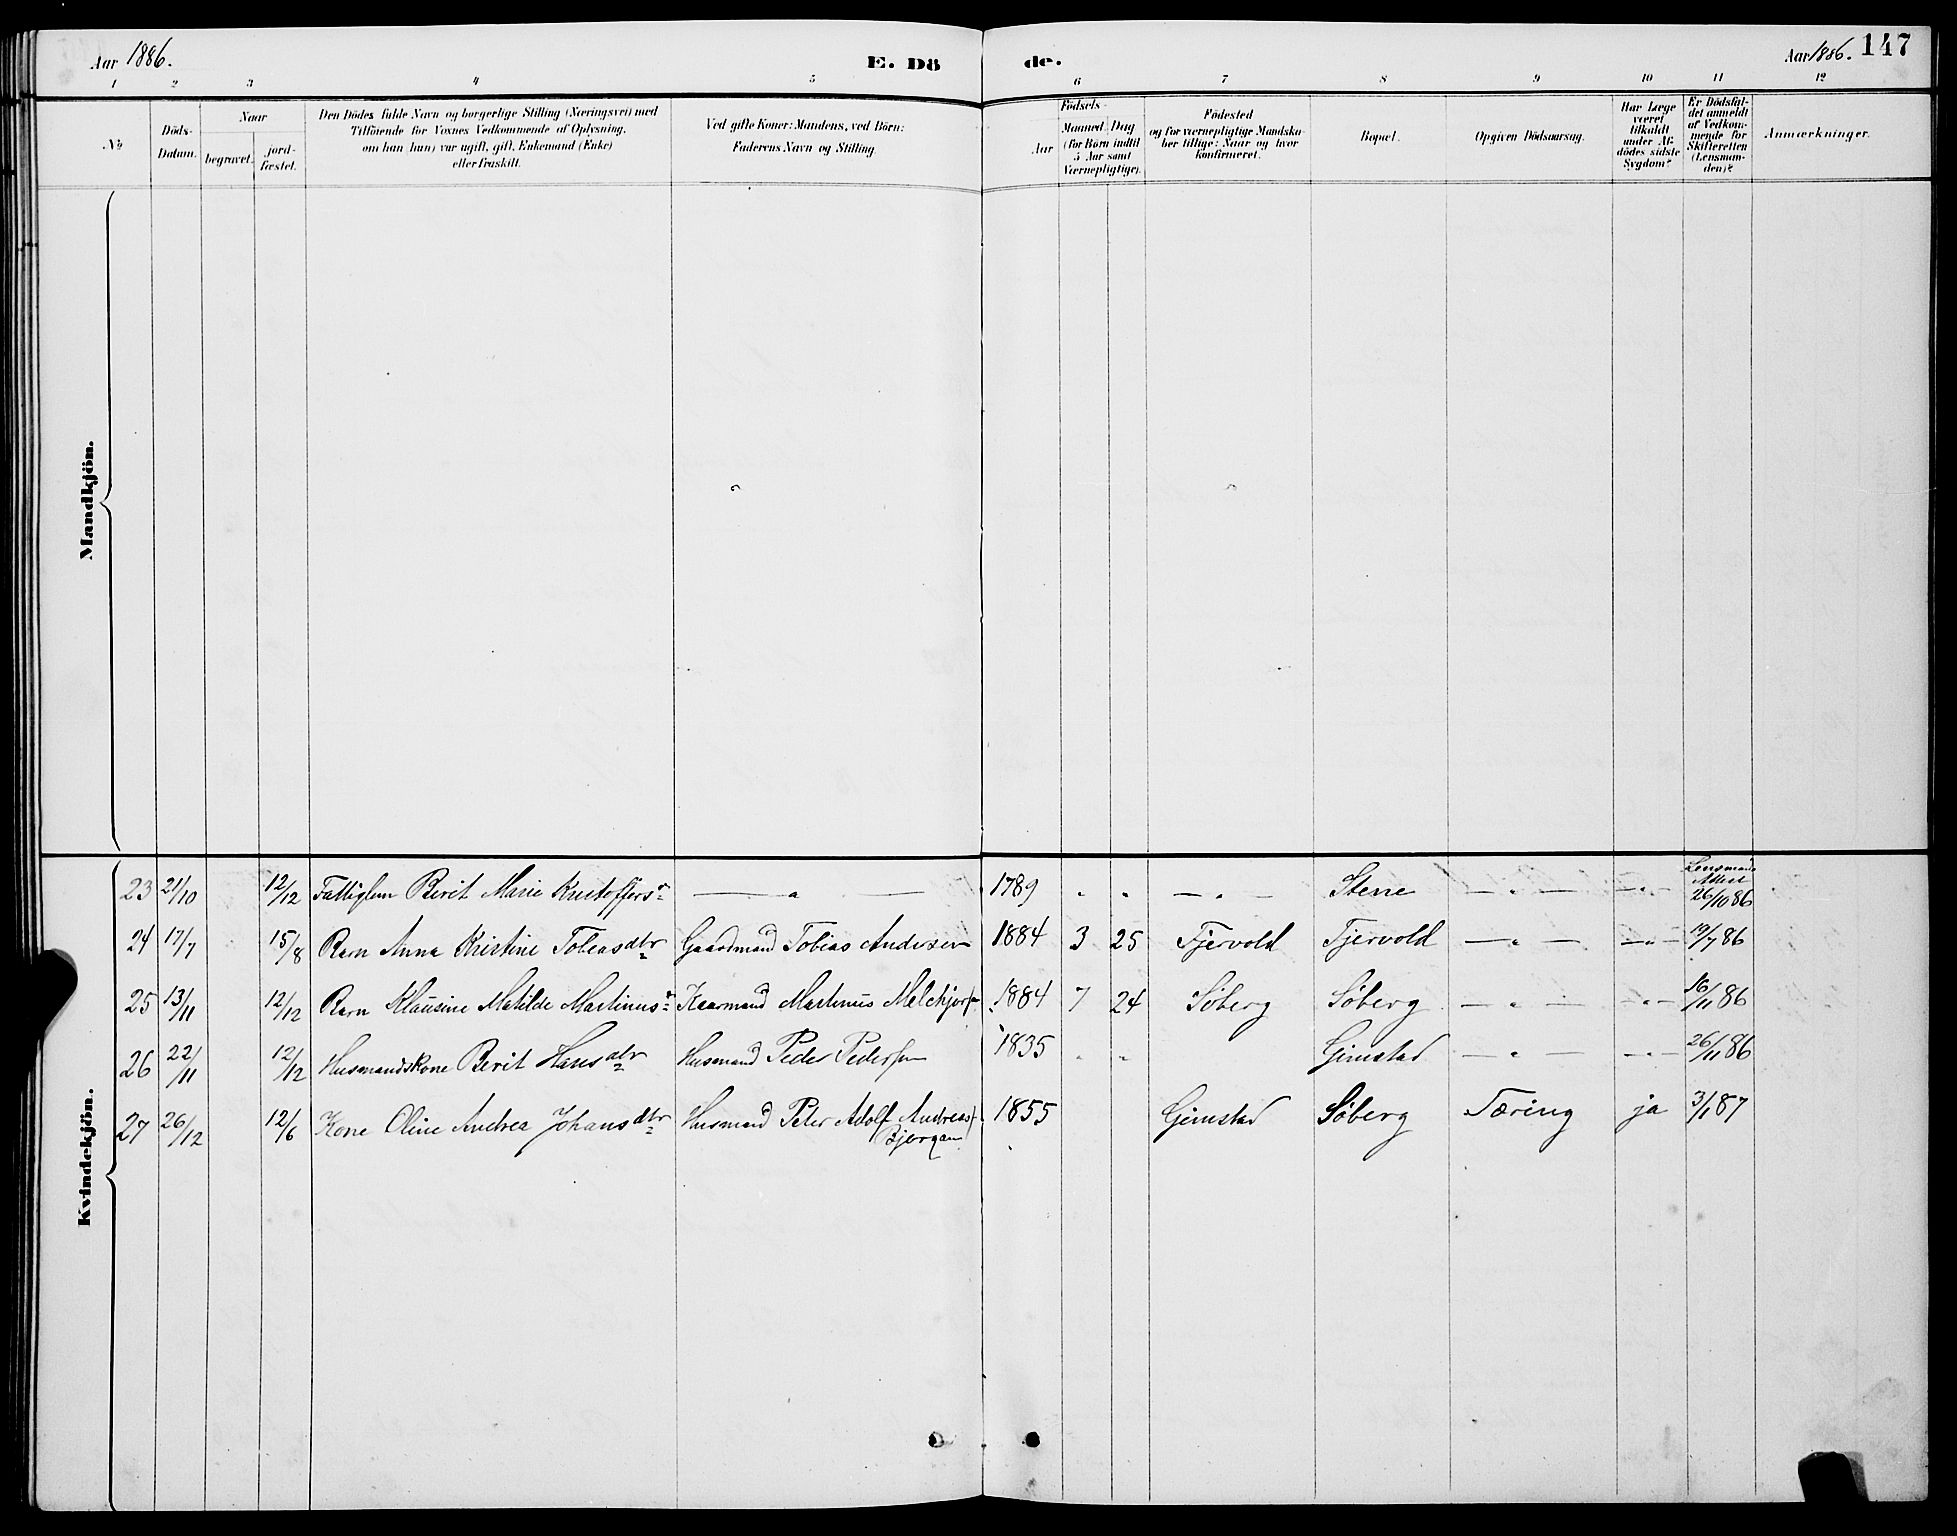 Aar 1886. E. Dö de. Aar 1886. 147
1 2 3 4 5 6 7 8 9 10 11 12
No
Döds-
Datum.
Naar
begravet.
jord-
fæstet.
Den Dödes fulde Navn og borgerlige Stilling (Næringsvei) med
Tilföiende for Voxnes Vedkommende af Oplysning,
om han (hun) var ugift, gift, Enkemand (Enke)
eller fraskilt.
Ved gifte Koner: Mandens, ved Börn:
Faderens Navn og Stilling.
Födsels-
Aar
Maaned Dag
(for Børn indtil
5 Aar samt
Værnepligtige).
Födested
og for værnepligtige Mandska-
ber tillige: Naar og hvor
konfirmeret.
Bopæl.
Opgiven Dödsaarsag.
Har Læge
været
tilkaldt
under Af-
dödes sidste
Sygdom?
Er Dödsfal-
det anmeldt
af Vedkom-
mende for
Skifteretten
(Lensman-
den)?
Anmærkninger.
Mandkjön.
Kvindekjön.
23 21/10 12/12 Fattiglem Berit Marie Kristoffers — " — 1789 " " — " — Stene — " — — " — Lensmands Attest 26/10 86
24 17/7 15/8 Barn Anna Kristine Tobiasdtr Gaardmand Tobias Andersen 1884 3 25 Fjervold Fjervold — " — — " — 19/7 86
25 13/11 12/12 Barn Klausine Matilde Martinus Kaarmand Martinus Melchjors 1884 7 24 Søberg Søberg — " — — " — 16/11 86
26 22/11 12/12 Husmandskone Berit Hansdtr Husmand Peder Pedersen 1835 " " Gimstad — " — — " — 26/11 86
27 26/12 12/6 Kone Oline Andrea Johansdtr Husmand Peter Adolf Andreas 1855 Gimstad Søberg Tæring ja 3/1 87
Bjørgan